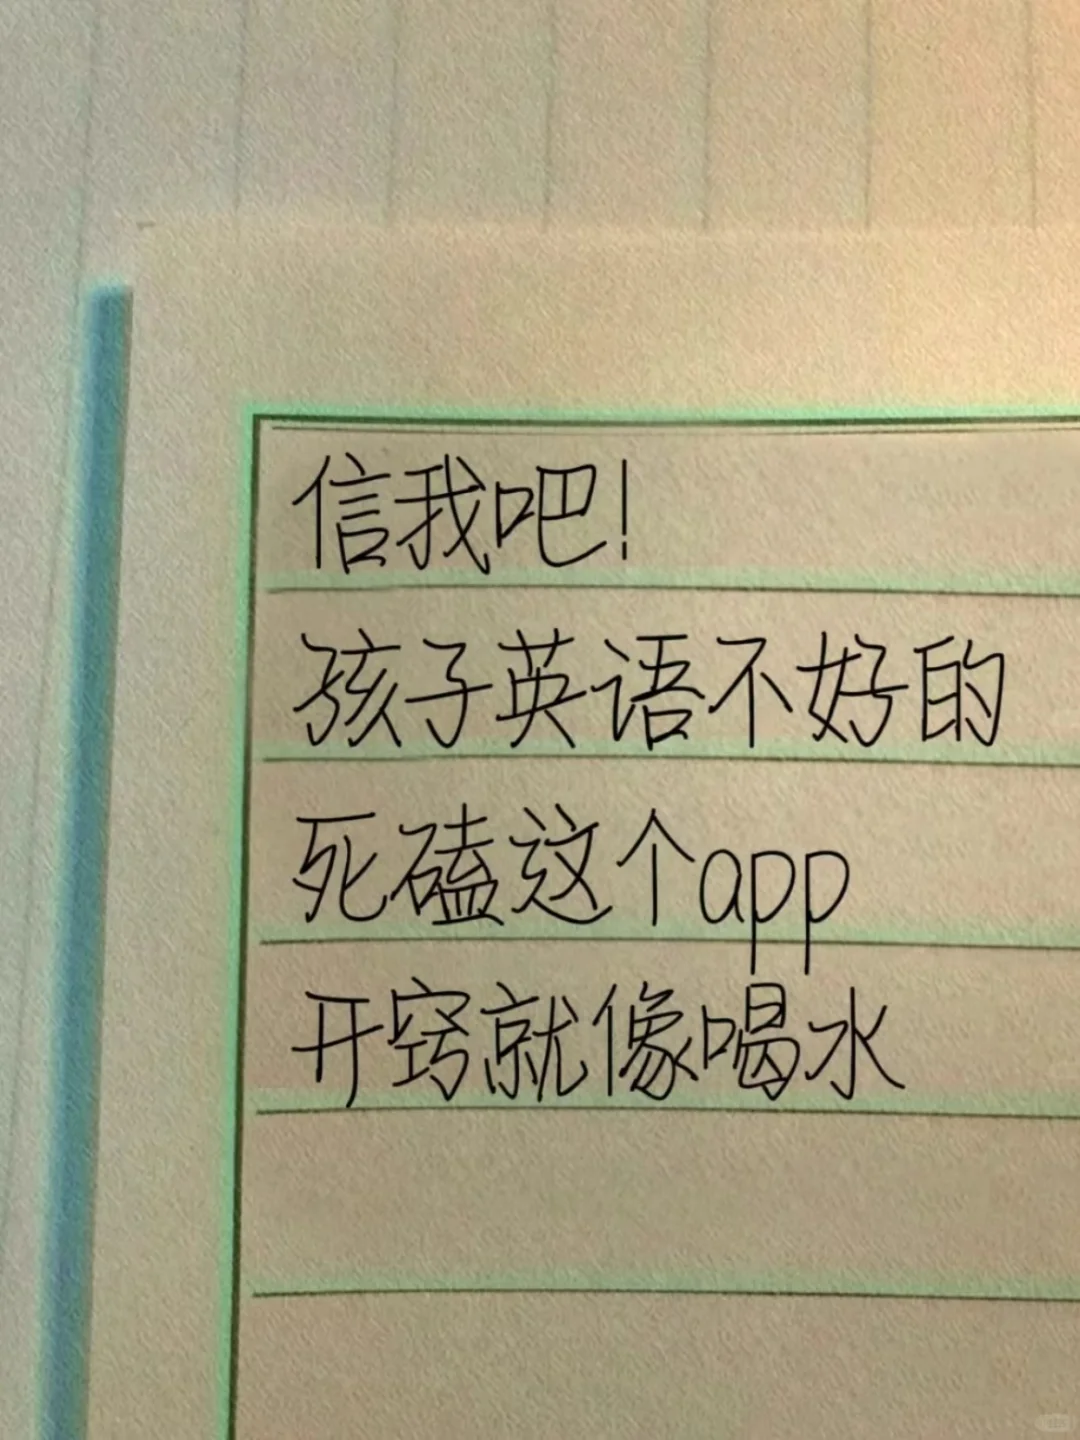 信我吧!
孩子英语不好的
死磕这个app
开窍就像喝水